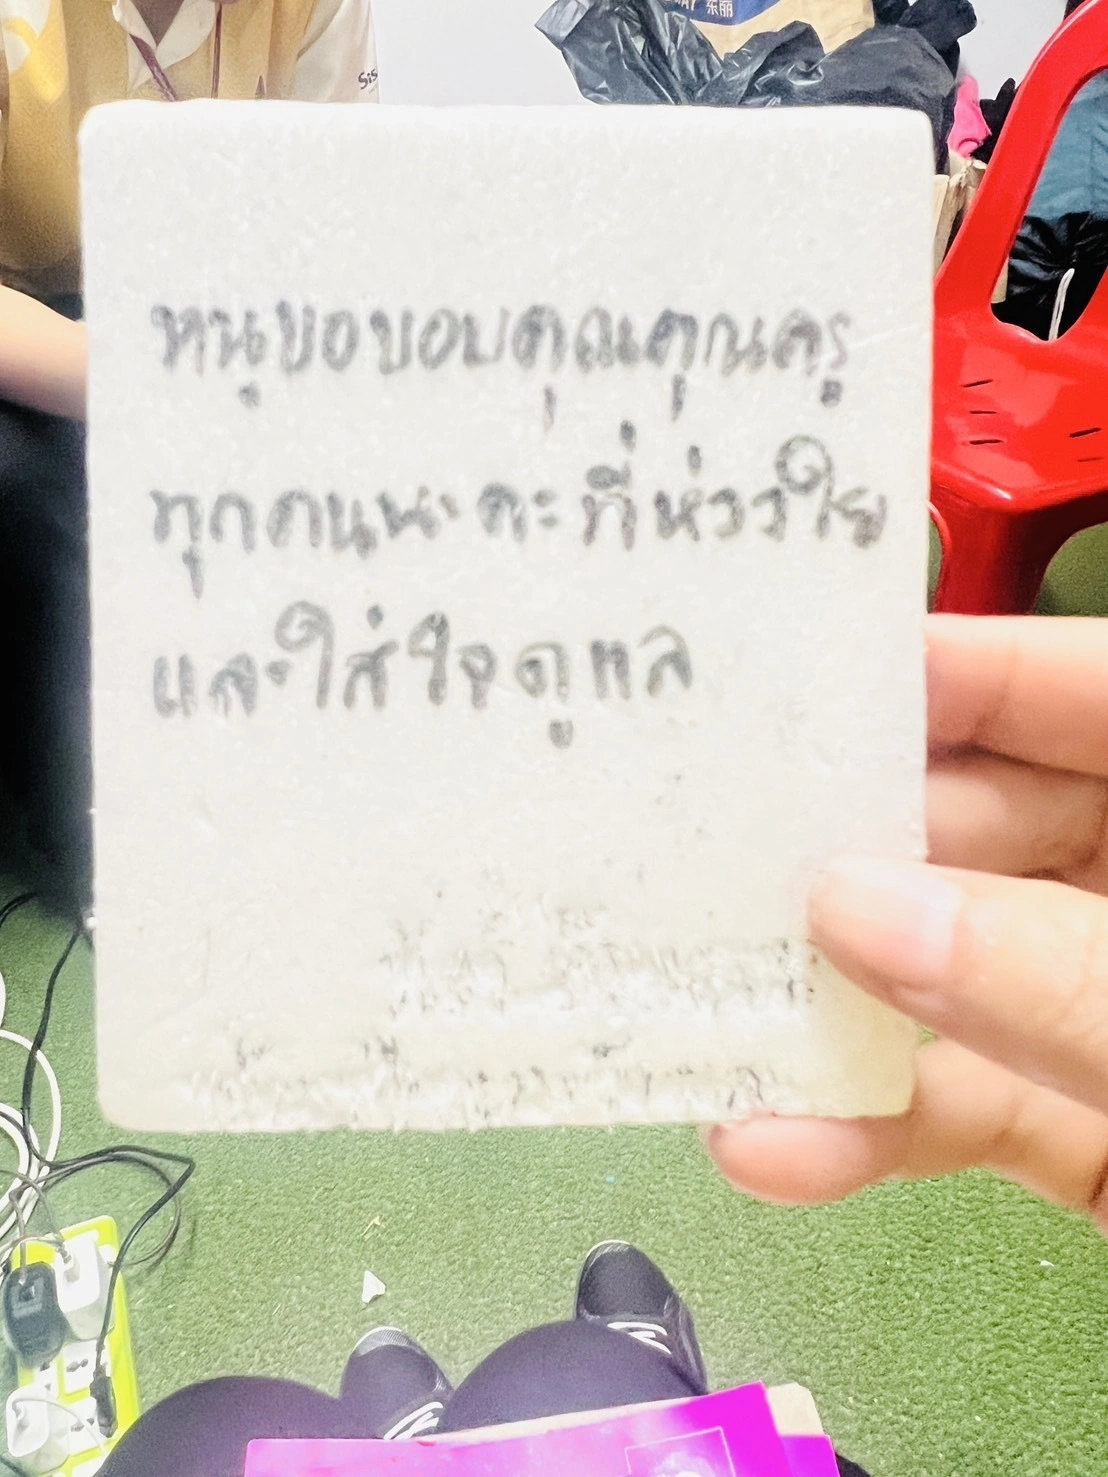 东丽
SiS
หนูขอขอบคุณคุณครู
ทุกคนนะคะที่ห่วงใย
และใส่ใจดูแล